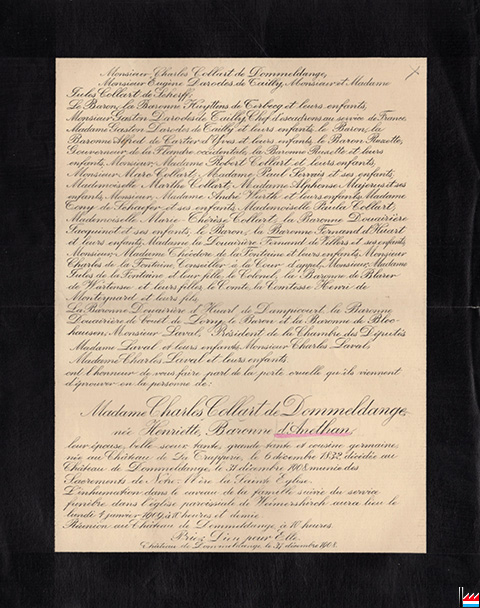 Monsieur Charles Collart de Dommeldange,
Monsieur Eugène Darodes de Tailly, Monsieur et Madame
Jules Collart de Scherff,
Le Baron, la Baronne et leurs enfants,
Monsieur Gaston Darodes de Tailly, Chef d'escadrons au service de France,
Madame Gaston Darodes de Tailly et leurs enfants, le Baron, la
Baronne Alfred de Cartier d'Yves et leurs enfants, le Baron Ruzette,
Gouverneur de la Flandre occidentale, la Baronne Ruzette et leurs
enfants, Monsieur, Madame Robert Collart et leurs enfants,
Monsieur Marc Collart, Madame Paul Servais et ses enfants,
Mademoiselle Marthe Collart, Madame Alphonse Majerus et ses
enfants, Monsieur, Madame André Wurth et leurs enfants, Madame
Come de Schaefer et ses enfants, Mademoiselle Collart,
Mademoiselle Marie Thérèse Collart, la Baronne Douairière
Jacquinot et ses enfants, le Baron, la Baronne Fernand d'Huart
et leurs enfants, Madame la Douairière Fernand de Villers et ses enfants,
Monsieur, Madame Théodore de la Fontaine et leurs enfants, Monsieur
Charles de la Fontaine Conseiller à la Cour d'appel, Monsieur, Madame
Jules de la Fontaine et leur fille, le Colonel, la Baronne de Blaren
de Wartensee et leurs filles, le Comte, la Comtesse Henri de
et leurs fils,
La Baronne Douairière d'Huart de Dampicourt, la Baronne
Douairière de Conét de Lorry, le Baron et la Baronne de Bloc-
hausen, Monsieur Laval, Président de la Chambre des Députés
Madame Laval et leurs enfants, Monsieur Charles Laval,
Madame Charles Laval et leurs enfants,
ont l'honneur de vous faire part de la perte cruelle qu'ils viennent
d'éprouver en la personne de:
Madame Charles Collart de Dommeldange,
née Henriette, Baronne d'Anethan,
leur épouse, belle-soeur, tante, grande tante et cousine germaine,
née au Château de La Trapperie, le 6 décembre 1832, décédée au
Château de Dommeldange, le 31 décembre 1908, munie des
Sacrements de Notre Mère la Sainte Eglise.
L'inhumation dans le caveau de la famille suivie du service
funèbre dans l'église paroissiale de Weimerskirch aura lieu le
lundi 4 janvier 1909, à 10 heures et demie.
Réunion au Château de Dommeldange, à 10 heures.
Priez Dieu pour Elle.
Château de Dommeldange, le 31 décembre 1908.